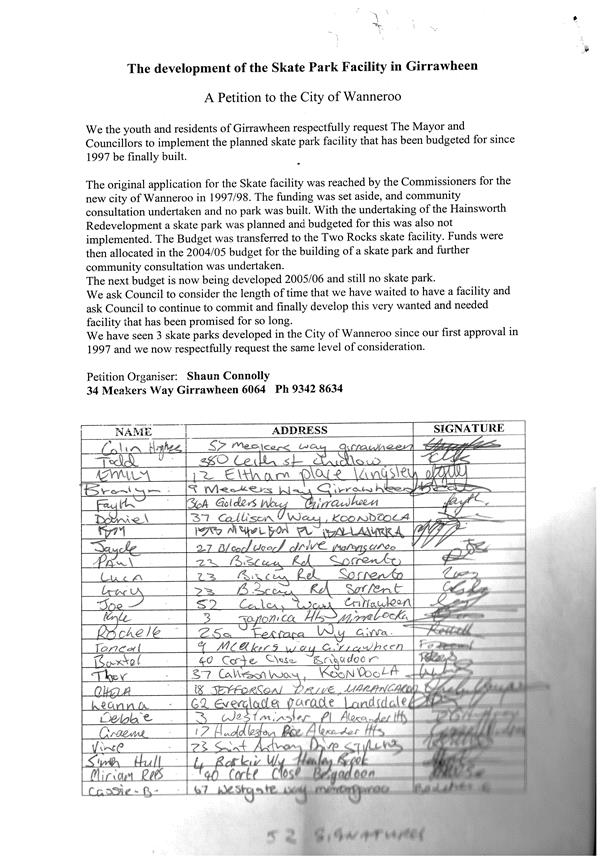 The development of the Skate Park Facility in Girrawheen
A Petition to the City of Wanneroo
We the youth and residents of Girrawheen respectfully request The Mayor and
Councillors to implement the planned skate park facility that has been budgeted for since
1997 be finally built.
The original application for the Skate facility was reached by the Commissioners for the
new city of Wanneroo in 1997/98. The funding was set aside, and community
consultation undertaken and no park was built. With the undertaking of the Hainsworth
Redevelopment a skate park was planned and budgeted for this was also not
implemented. The Budget was transferred to the Two Rocks skate facility. Funds were
then allocated in the 2004/05 budget for the building of a skate park and further
community consultation was undertaken.
The next budget is now being developed 2005/06 and still no skate park.
We ask Council to consider the length of time that we have waited to have a facility and
ask Council to continue to commit and finally develop this very wanted and needed
facility that has been promised for so long.
We have seen 3 skate parks developed in the City of Wanneroo since our first approval in
1997 and we now respectfully request the same level of consideration.
Petition Organiser: Shaun Connolly
34 Meakers Way Girrawheen 6064 Ph 9342 8634
NAME ADDRESS SIGNATURE
Colin Hughes 57 Meakers way girrawheen
Todd Leith st
EMILY 12 Eltham place kingsley
9 Meakers Way Girrawheen
Fayth 36A Golders Way Girrawheen
Daniel 37 Callison Way, KOONDOOLA
PL BALLAJURRA
Jayde 27 Bloodwood drive
Paul 23 Biscay Rd Sorrento
Luca 23 Biscay Rd Sorrento
Gary 23 Biscay Rd Sorrent
Joe 52 Way Girrawheen
Kyle 3 Japonica Hts Mirrabooka
Rochelle 25a Ferrara Wy Girra.
9 Meakers way Girrawheen
40 Corte Close Brigadoon
Thor 37 Callison Way, KOONDOOLA
18 JEFFERSON DRIVE, MARANGAROO
Leanna 62 Everglades Parade Landsdale
Debbie 3 Westminster Pl Alexander Hts
Graeme 17 Huddleston Alexander Hts
Vince 23 Saint Anthony Drive STIRLING
Simon Hull 4 Wy Henley Brook
Miriam Rees 40 Corte Close Brigadoon
Cassie-B- 67 Westgate way marangaroo
52 SIGNATURES